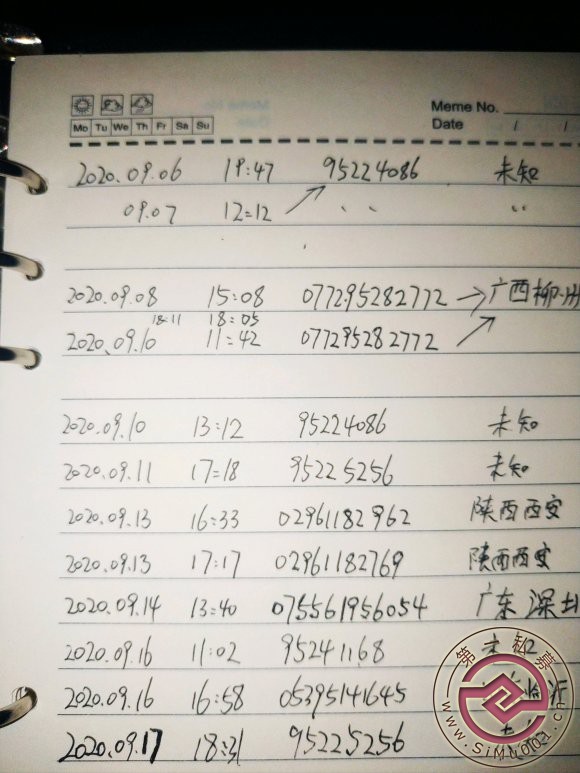 Meme No.
Mo Tu We Th Fr Sa Su
Date / /
2020.09.06 19:47 95224086 未知
09.07 12:12 〃 〃
2020.09.08 15:08 077295282772 → 广西柳州
18:11 18:05
2020.09.10 11:42 077295282772
2020.09.10 13:12 95224086 未知
2020.09.11 17:18 95225256 未知
2020.09.13 16:33 02961182962 陕西西安
2020.09.13 17:17 02961182769 陕西西安
2020.09.14 13:40 075561956054 广东深圳
2020.09.16 11:02 95241168 未知
2020.09.16 16:58 05395141645 临沂
2020.09.17 18:31 95225256
第一私募
www.simuola.cn